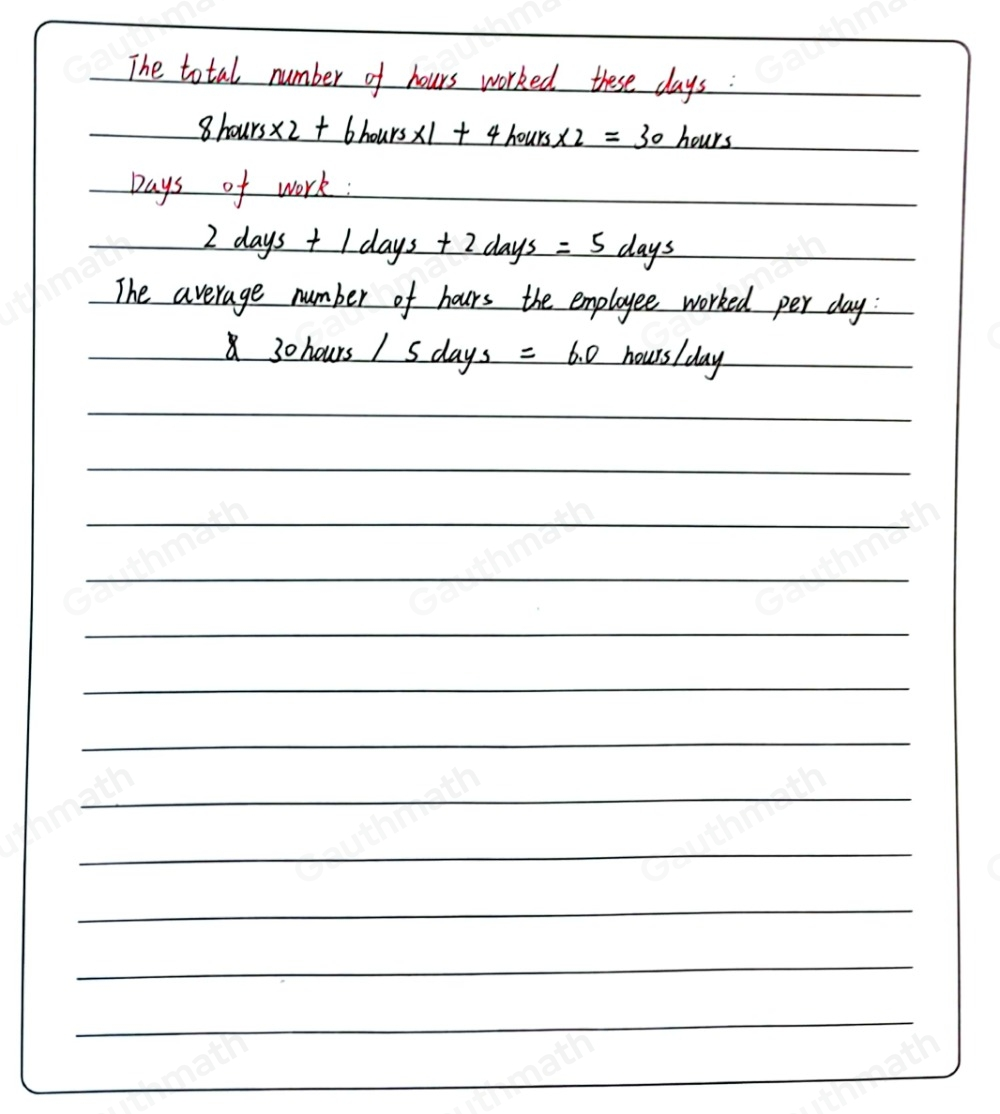 The total number of hours worked these days :
8 hours×2 + 6 hours×1 + 4 hours×2 = 30 hours
Days of work :
2 days + 1 days + 2 days = 5 days
The average number of hours the employee worked per day :
30 hours / 5 days = 6.0 hours/day
Gauthmath